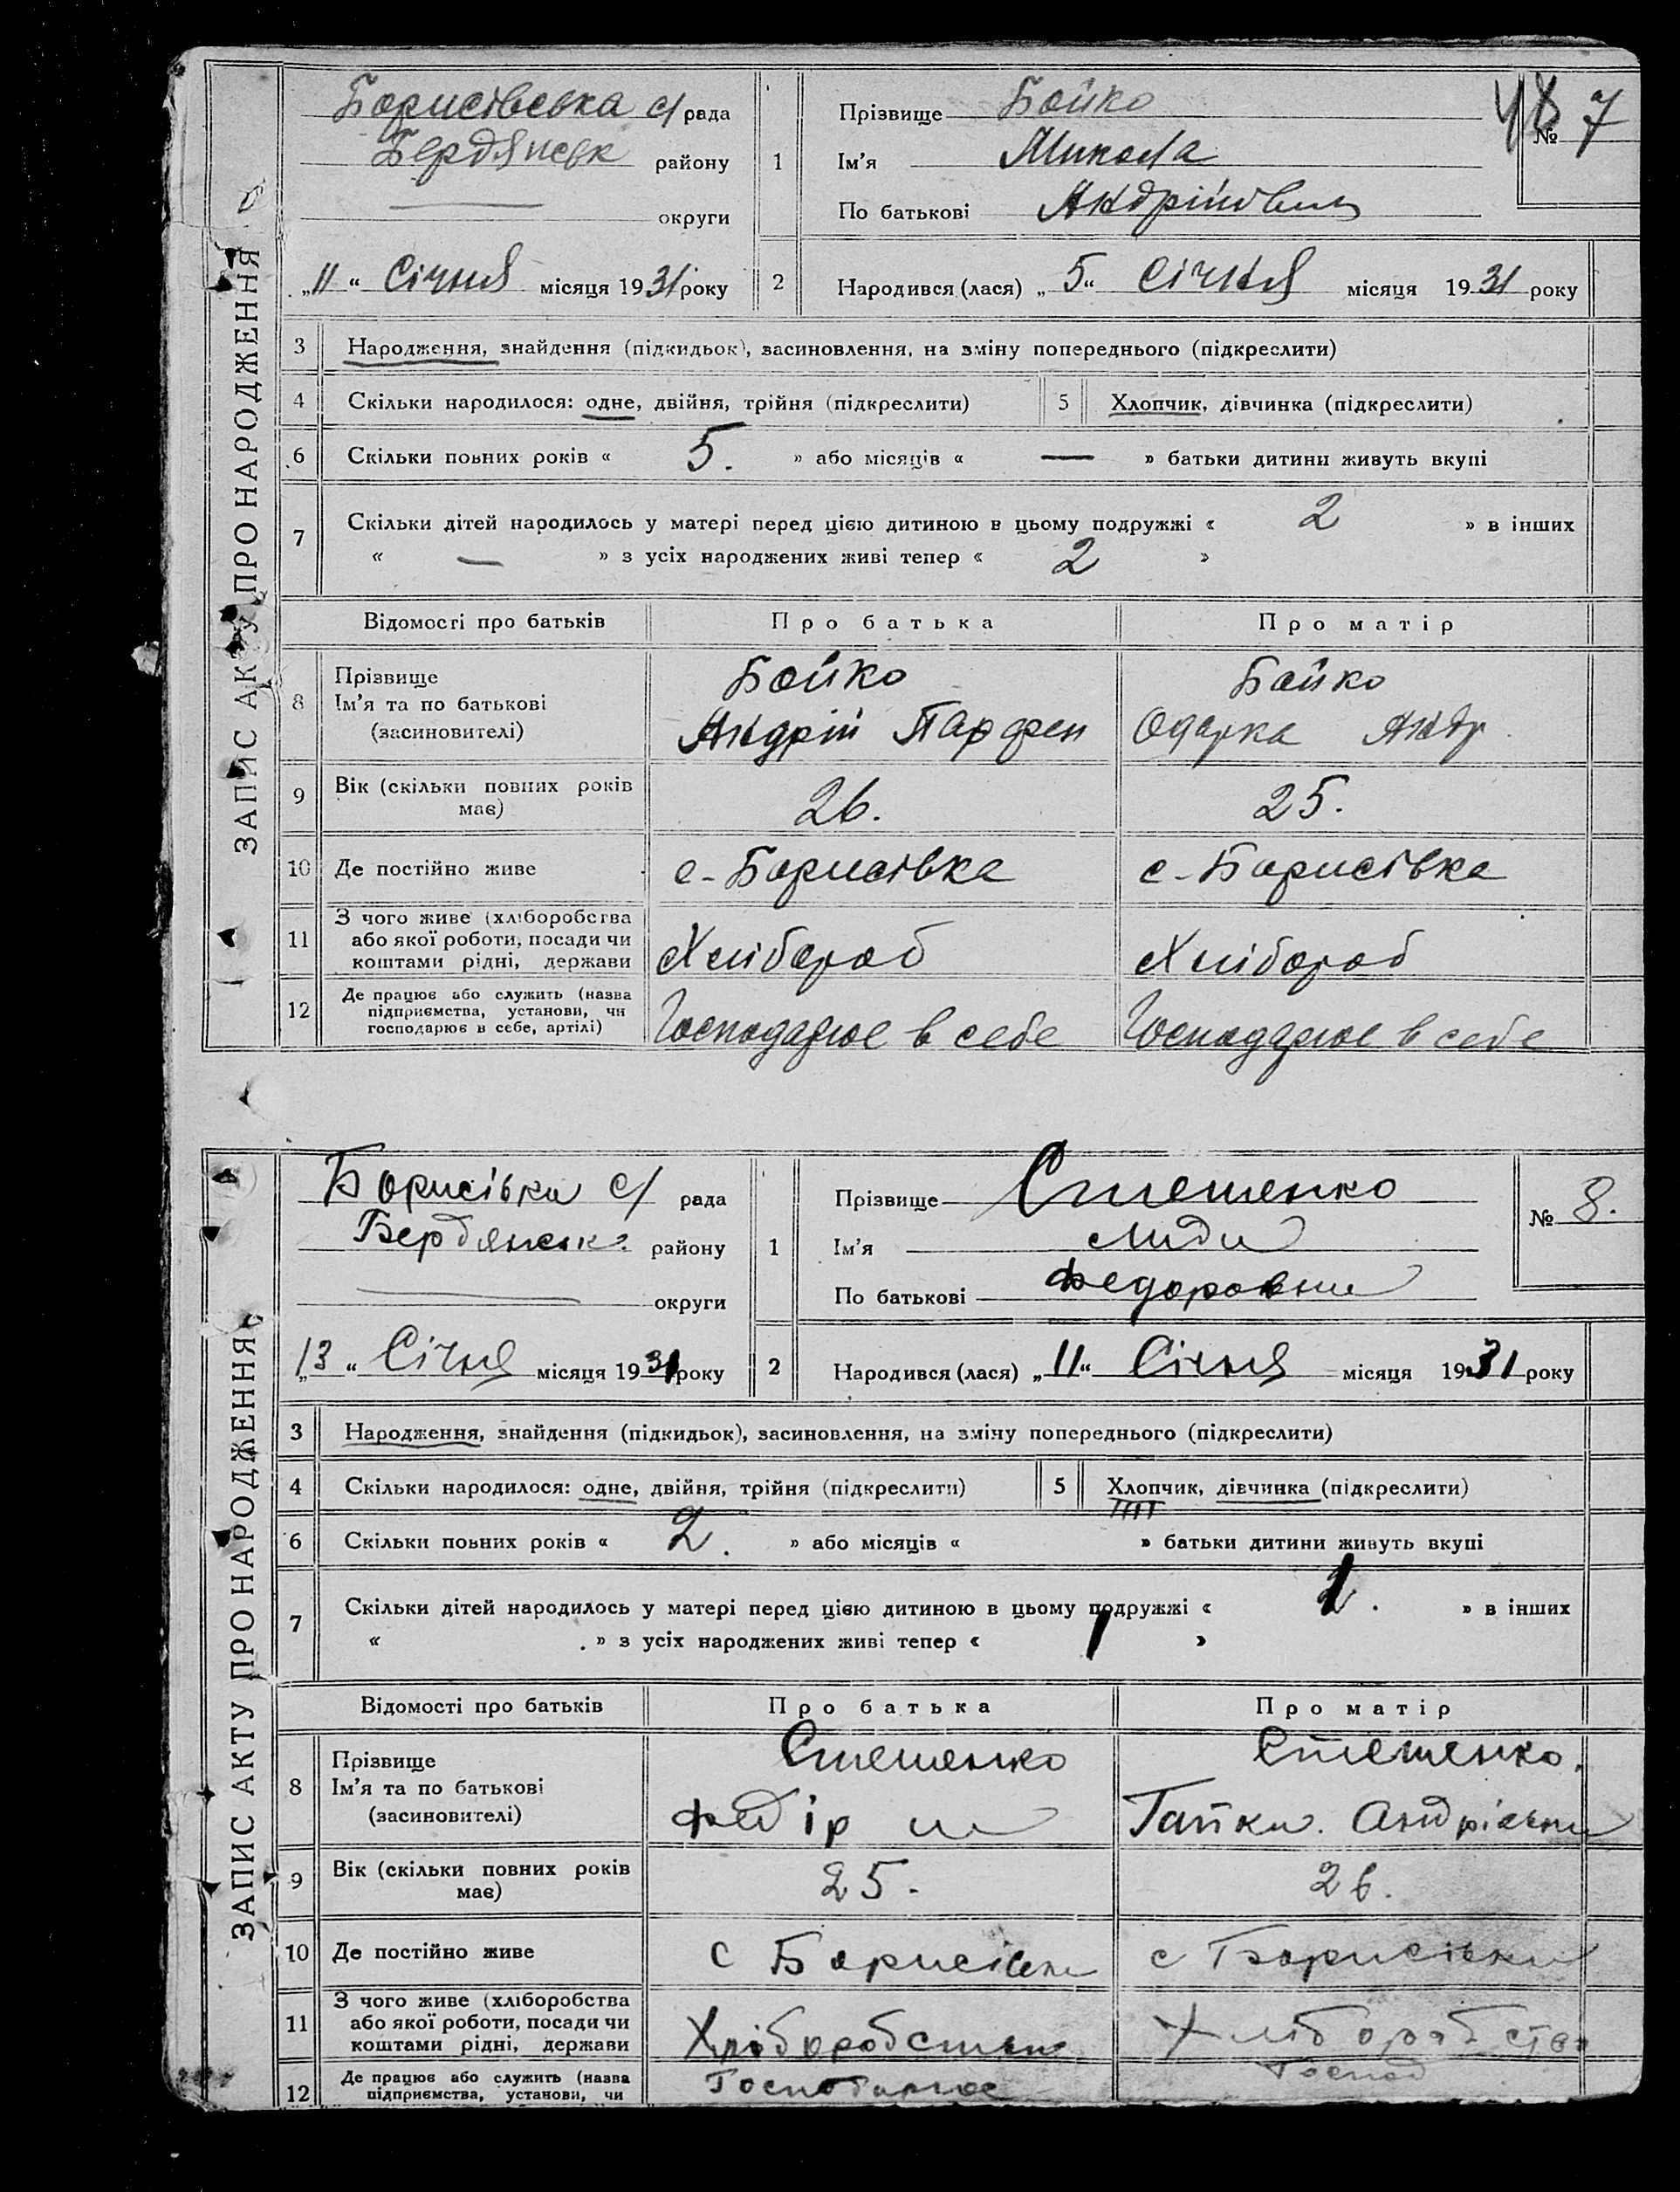 ЗАПИС АКТУ ПРО НАРОДЖЕННЯ
Борисівська с/ рада
Бердянськ району
округи
„11“ Січня місяця 1931 року
1
Прізвище Бойко
Ім'я Микола
По батькові Андрійович
№ 7
2
Народився (лася) „5“ Січня місяця 1931 року
3 Народження, знайдення (підкидьок), засиновлення, на зміну попереднього (підкреслити)
4 Скільки народилося: одне, двійня, трійня (підкреслити) 5 Хлопчик, дівчинка (підкреслити)
6 Скільки повних років « 5. » або місяців « — » батьки дитини живуть вкупі
7 Скільки дітей народилось у матері перед цією дитиною в цьому подружжі « 2 » в інших
« — » з усіх народжених живі тепер « 2 »
Відомості про батьків Про батька Про матір
8 Прізвище Бойко Бойко
Ім'я та по батькові Андрій Парфен Одарка Андр.
(засиновителі)
9 Вік (скільки повних років має) 26. 25.
10 Де постійно живе с-Борисівка с-Борисівка
11 З чого живе (хліборобства
або якої роботи, посади чи
коштами рідні, держави Хлібороб Хлібороб
12 Де працює або служить (назва
підприємства, установи, чи
господарює в себе, артілі) Господарює в себе Господарює в себе
ЗАПИС АКТУ ПРО НАРОДЖЕННЯ
Борисівка с/ рада
Бердянськ. району
округи
„13“ Січня місяця 1931 року
1
Прізвище Стешенко
Ім'я Лида
По батькові Федоровна
№ 8.
2
Народився (лася) „11“ Січня місяця 1931 року
3 Народження, знайдення (підкидьок), засиновлення, на зміну попереднього (підкреслити)
4 Скільки народилося: одне, двійня, трійня (підкреслити) 5 Хлопчик, дівчинка (підкреслити)
6 Скільки повних років « 2. » або місяців « » батьки дитини живуть вкупі
7 Скільки дітей народилось у матері перед цією дитиною в цьому подружжі « 1. » в інших
« » з усіх народжених живі тепер « 1 »
Відомості про батьків Про батька Про матір
8 Прізвище Стешенко Стешенко.
Ім'я та по батькові Федір Гапка. Андрієвна
(засиновителі)
9 Вік (скільки повних років має) 25. 26.
10 Де постійно живе с Борисівка с Борисівка
11 З чого живе (хліборобства
або якої роботи, посади чи
коштами рідні, держави Хліборобство Хліборобство
12 Де працює або служить (назва Господарює Господ
підприємства, установи, чи